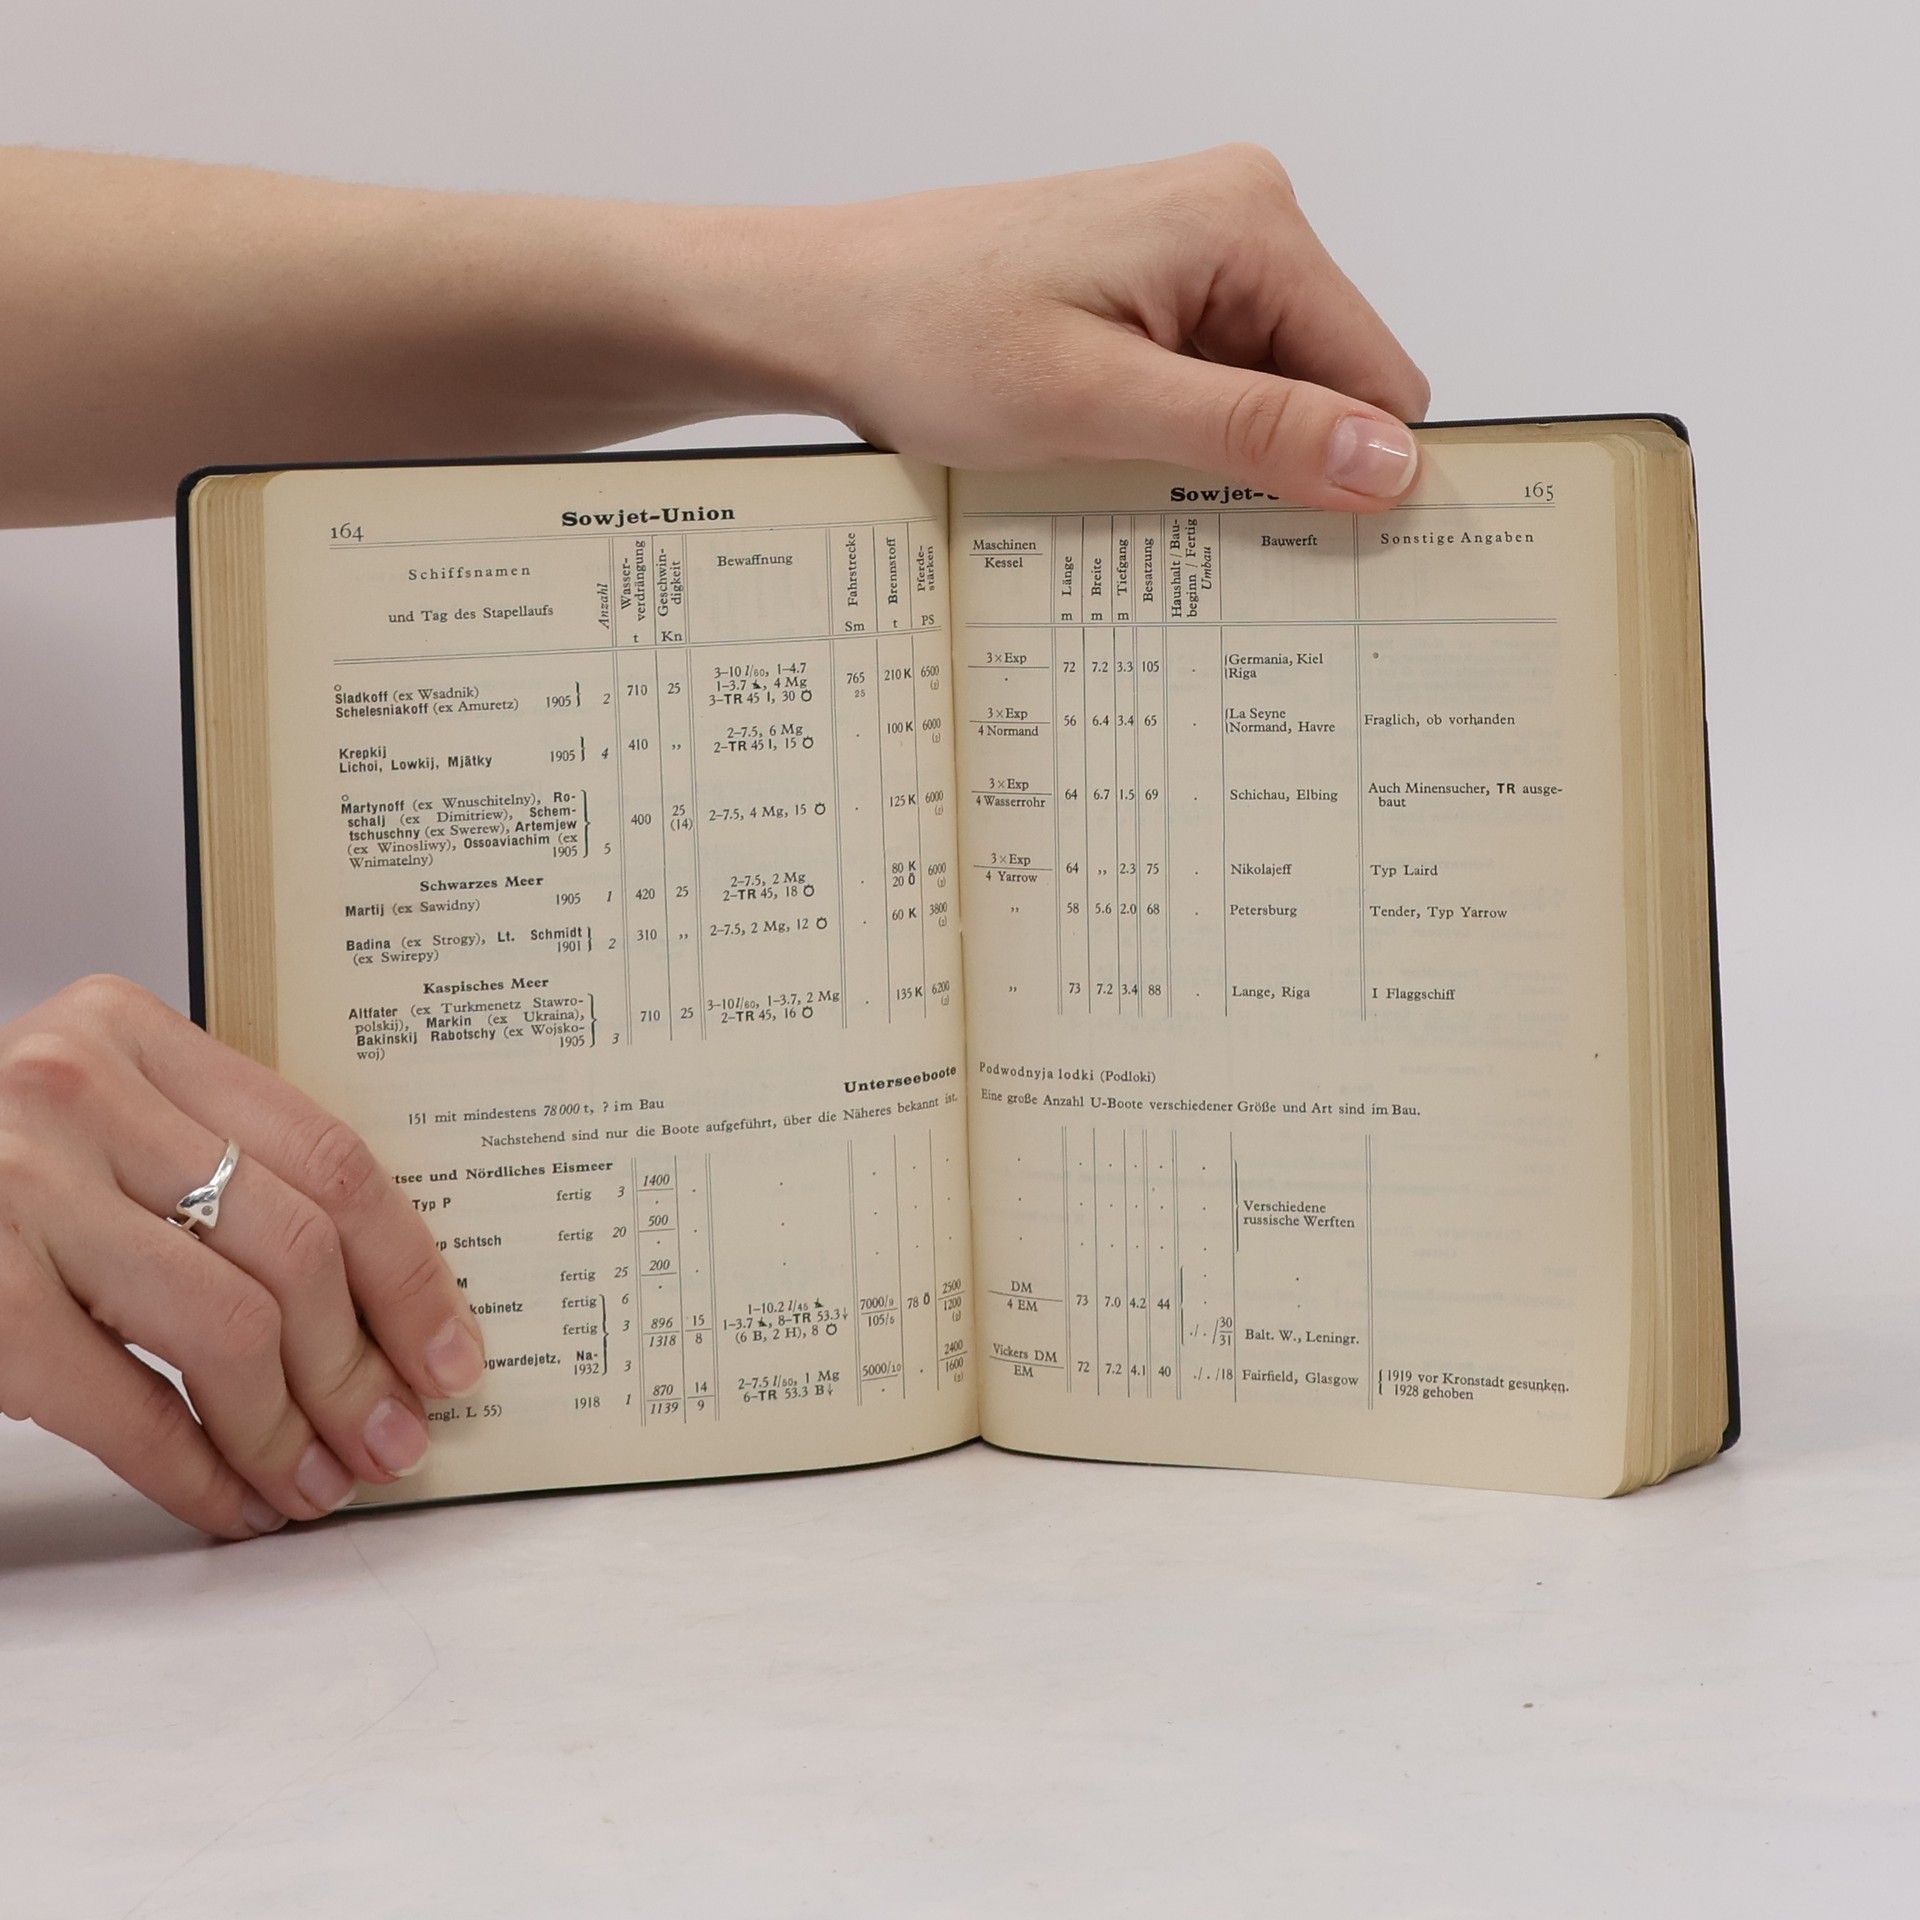 164
Sowjet-Union
Schiffsnamen
und Tag des Stapellaufs
Anzahl
Wasser-
verdrängung
t
Geschwin-
digkeit
Kn
Bewaffnung
Fahrstrecke
Sm
Brennstoff
t
Pferde-
stärken
PS
Sladkoff (ex Wsadnik)
Schelesniakoff (ex Amuretz) 1905 } 2 710 25
3–10 l/60, 1–4.7
1–3.7, 4 Mg
3–TR 45 I, 30 Ö
765
25
210 K 6500
Krepkij
Lichoi, Lowkij, Mjätky 1905 } 4 410 ,,
2–7.5, 6 Mg
2–TR 45 I, 15 Ö
. 100 K 6000
Martynoff (ex Wnuschitelny), Ro-
schalj (ex Dimitriew), Schem-
tschuschny (ex Swerew), Artemjew
(ex Winosliwy), Ossoaviachim (ex
Wnimatelny) 1905 } 5 400 25
(14)
2–7.5, 4 Mg, 15 Ö . 125 K 6000
Schwarzes Meer
Martij (ex Sawidny) 1905 1 420 25
2–7.5, 2 Mg
2–TR 45, 18 Ö
. 80 K
20 Ö
6000
Badina (ex Strogy), Lt. Schmidt
(ex Swirepy) 1901 } 2 310 ,, 2–7.5, 2 Mg, 12 Ö . 60 K 3800
Kaspisches Meer
Altfater (ex Turkmenetz Stawro-
polskij), Markin (ex Ukraina),
Bakinskij Rabotschy (ex Wojsko-
woj) 1905 } 3 710 25
3–10 l/60, 1–3.7, 2 Mg
2–TR 45, 16 Ö
. 135 K 6200
Unterseeboote
151 mit mindestens 78000 t, ? im Bau
Nachstehend sind nur die Boote aufgeführt, über die Näheres bekannt ist.
tsee und Nördliches Eismeer
Typ P fertig 3 1400
yp Schtsch fertig 20 500
M fertig 25 200
kobinetz fertig 6
fertig 3 896
1318
15
8
1–10.2 l/45
1–3.7, 8–TR 53.3↓
(6 B, 2 H), 8 Ö
7000/9
105/5
78 Ö 2500
1200
ogwardejetz, Na-
1932 } 3
engl. L 55) 1918 1 870
1139
14
9
2–7.5 l/50, 1 Mg
6–TR 53.3 B↓
5000/10
. 2400
1600
Sowjet-
165
Maschinen
Kessel
Länge
m
Breite
m
Tiefgang
m
Besatzung
Haushalt / Bau-
beginn / Fertig
Umbau
Bauwerft
Sonstige Angaben
3×Exp
72 7.2 3.3 105 . {Germania, Kiel
Riga
3×Exp
4 Normand
56 6.4 3.4 65 . {La Seyne
Normand, Havre
Fraglich, ob vorhanden
3×Exp
4 Wasserrohr
64 6.7 1.5 69 . Schichau, Elbing
Auch Minensucher, TR ausge-
baut
3×Exp
4 Yarrow
64 ,, 2.3 75 . Nikolajeff Typ Laird
,, 58 5.6 2.0 68 . Petersburg Tender, Typ Yarrow
,, 73 7.2 3.4 88 . Lange, Riga I Flaggschiff
Podwodnyja lodki (Podloki)
Eine große Anzahl U-Boote verschiedener Größe und Art sind im Bau.
Verschiedene
russische Werften
DM
4 EM
73 7.0 4.2 44
./ . /30
31
Balt. W., Leningr.
Vickers DM
EM
72 7.2 4.1 40 ./ . /18 Fairfield, Glasgow
{ 1919 vor Kronstadt gesunken.
1928 gehoben